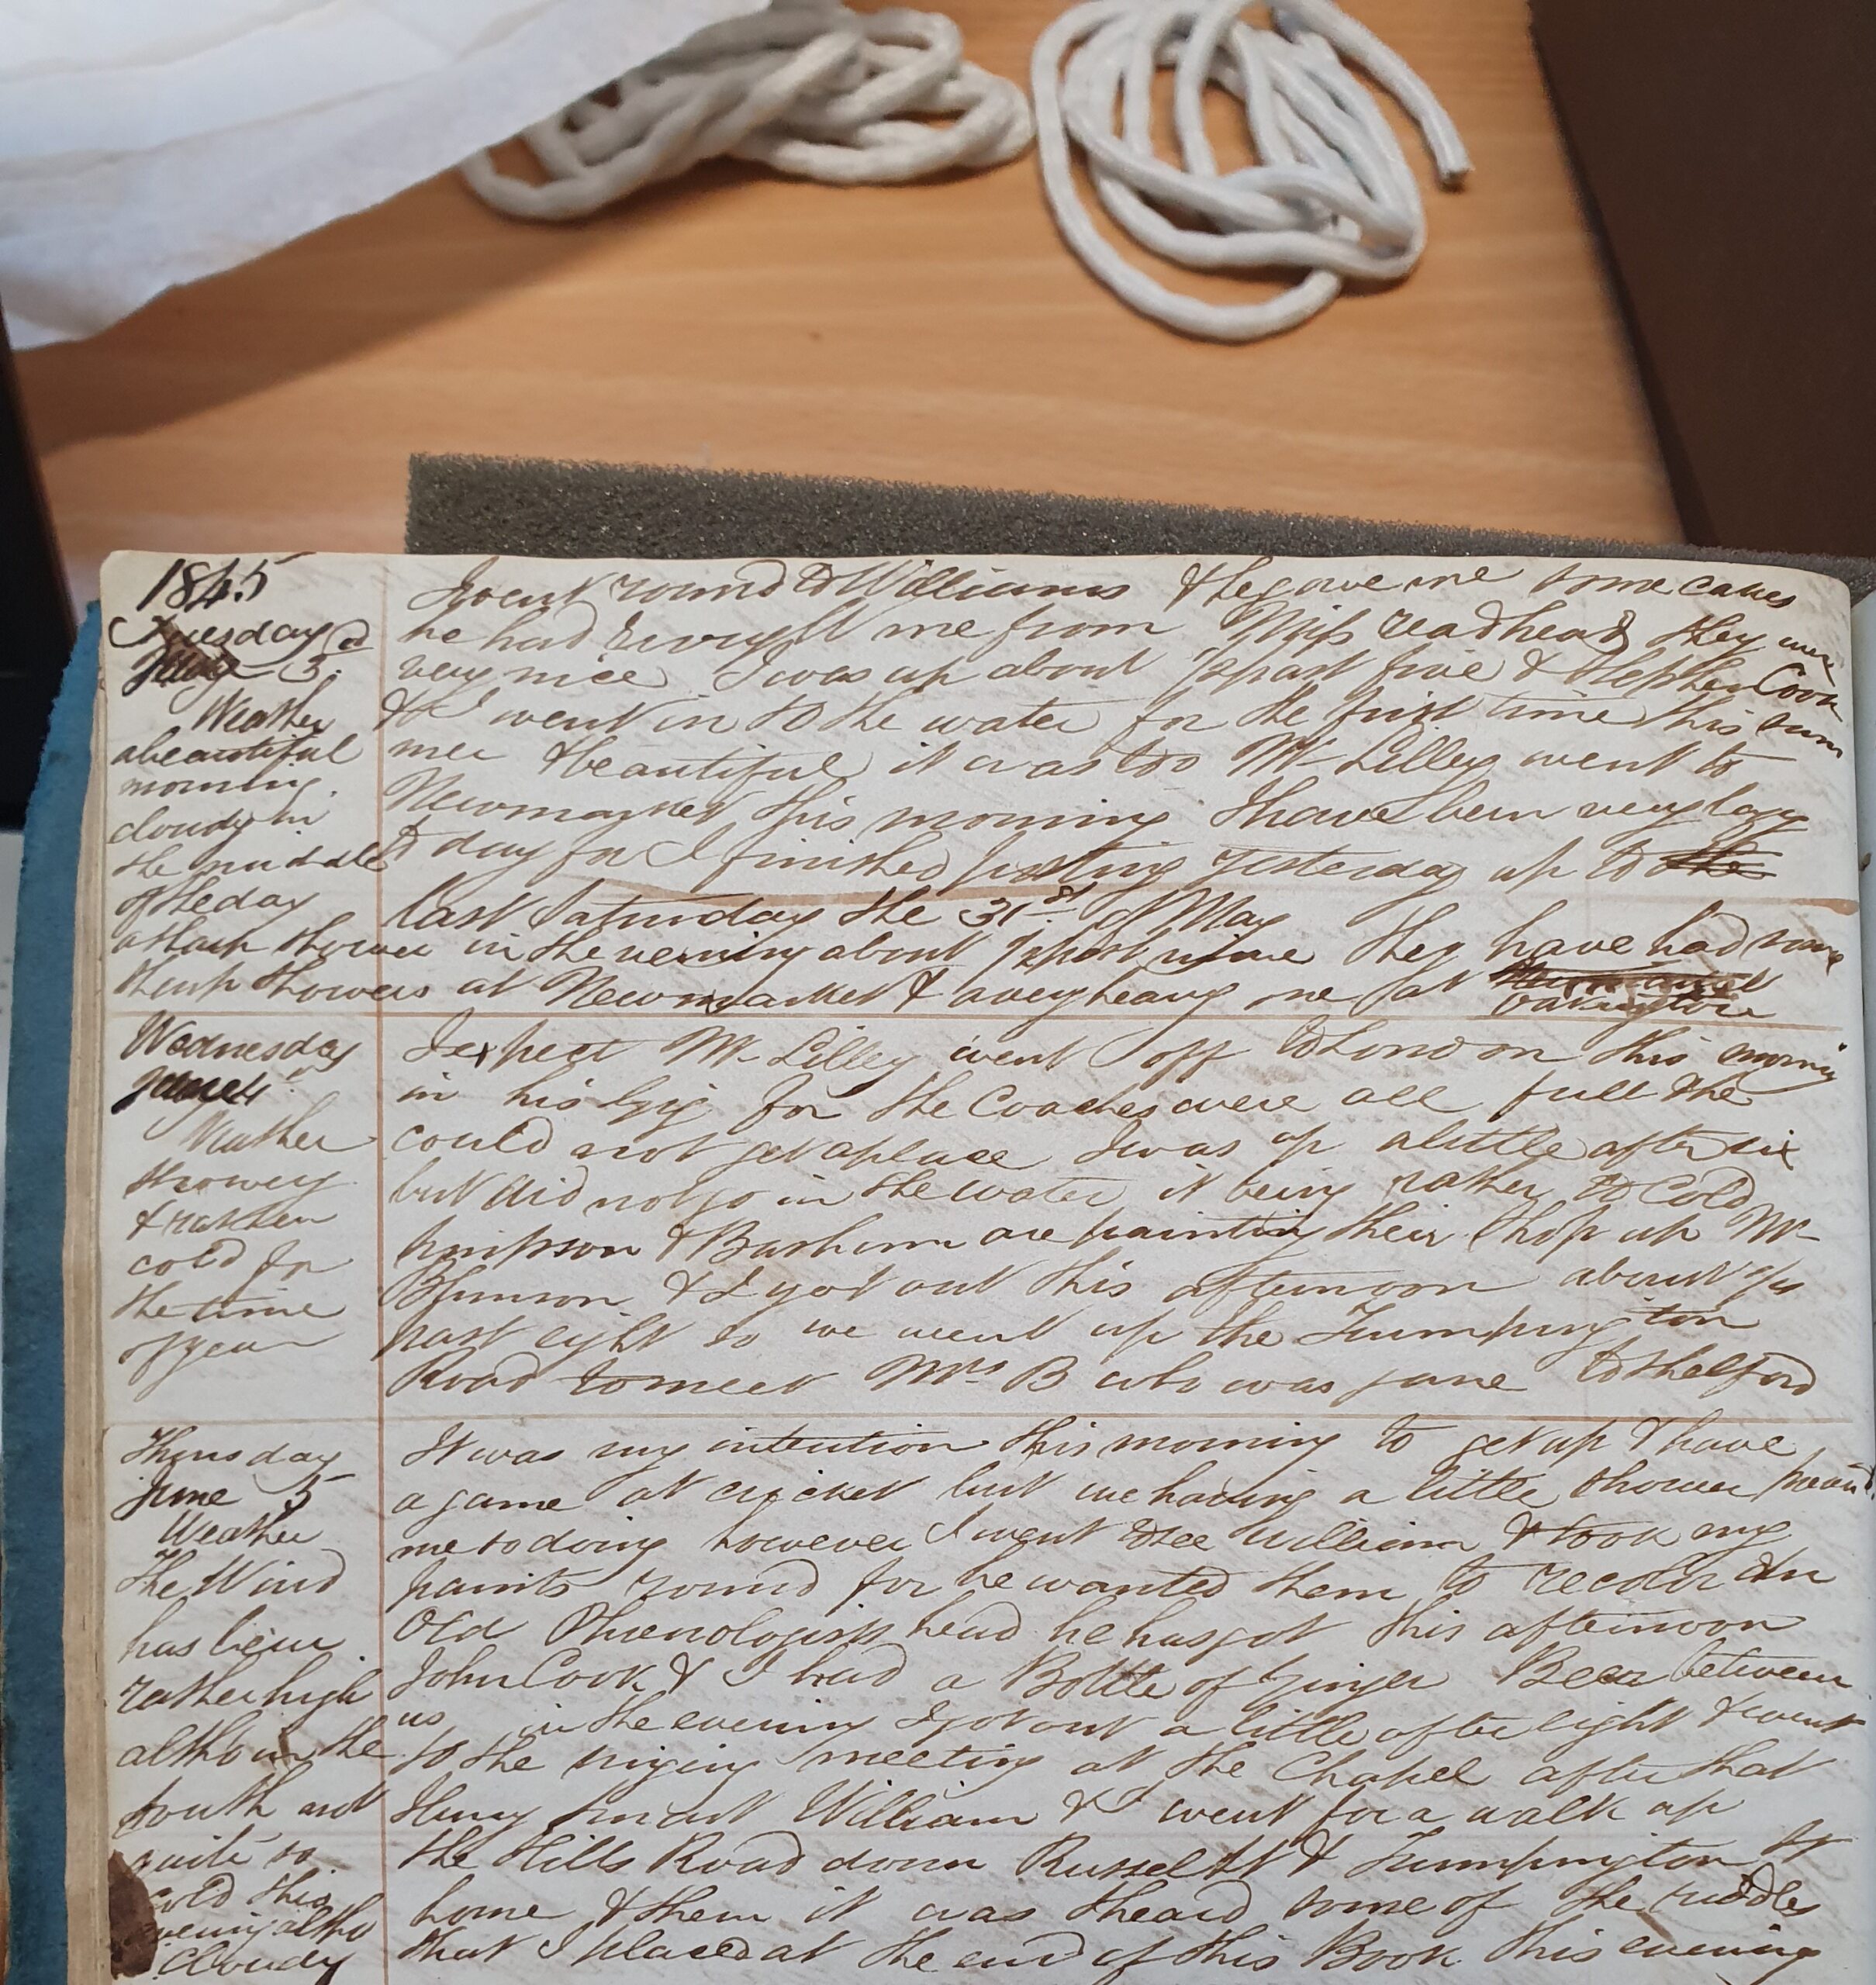 1845
Tuesday
3.
Weather
a beautiful
morning.
cloudy in
the middle
of the day
I went round to Williams & he gave me some cakes
he had brought me from Miss readhead they were
very nice I was up about ½ past five & Stephen Cook
& I went in to the water for the first time this sum
mer & beautiful it was too Mr Lilley went to
Newmarket this morning I have been very lazy
to day for I finished posting yesterday up to the
last Saturday the 31st of May
a sharp shower in the evening about ½ past nine they have had some
sharp showers at Newmarket & a very heavy one at
Oakington
Wednesday
June 4
Weather
showery
& rather
cold for
the time
of year
I expect Mr Lilley went off to London this morning
in his gig for the Coaches were all full & he
could not get a place I was up a little after six
but did not go in the water it being rather to cold
Simpson & Basham are painting their shop up Mr
& I got out this afternoon about ¼
past eight so we went up the Trumpington
Road to meet Mrs B who was gone to Shelford
Thursday
June 5
Weather
The Wind
has been
rather high
altho in the
south and
quite so
cold this
evening altho
Cloudy
It was my intention this morning to get up & have
a game at cricket but we having a little shower
me so doing however I went to see William & took my
paints round for he wanted them to recolor an
Old Phrenologists head he has got this afternoon
John Cook & I had a Bottle of Ginger Beer between
us in the evening I got out a little after eight & went
to the singing meeting at the Chapel after that
Henry Smart William & I went for a walk up
the Hills Road down Russell St & Trumpington St
home & then it was I heard some of the riddles
that I placed at the end of this Book this evening